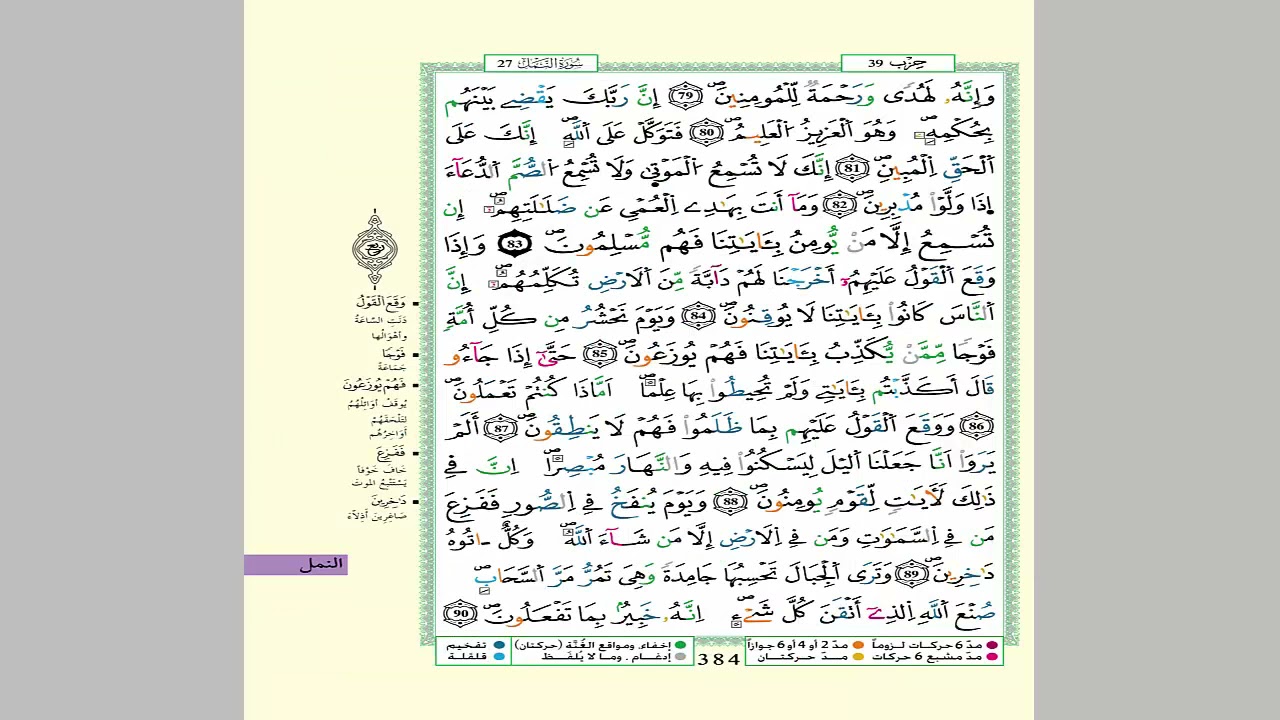 حِزْب 39
سُورَةُ النَّمْل 27
وَإِنَّهُۥ لَهُدٗى وَرَحْمَةٞ لِّلْمُومِنِينَۖ 79 إِنَّ رَبَّكَ يَقْضِے بَيْنَهُم
بِحُكْمِهِۦۖ وَهُوَ اَ۬لْعَزِيزُ اُ۬لْعَلِيمُۖ 80 فَتَوَكَّلْ عَلَى اَ۬للَّهِۖ إِنَّكَ عَلَى
اَ۬لْحَقِّ اِ۬لْمُبِينِۖ 81 إِنَّكَ لَا تُسْمِعُ اُ۬لْمَوْتۭيٰ وَلَا تُسْمِعُ اُ۬لصُّمَّ اَ۬لدُّعَآءَ
اِ۪ذَا وَلَّوْاْ مُدْبِرِينَۖ 82 وَمَآ أَنتَ بِهَٰدِے اِ۬لْعُمْيِ عَن ضَلَٰلَتِهِمُۥٓۖ إِن
تُسْمِعُ إِلَّا مَنْ يُّومِنُ بِـَٔايَٰتِنَا فَهُم مُّسْلِمُونَۖ 83 وَإِذَا
وَقَعَ اَ۬لْقَوْلُ عَلَيْهِمُۥٓ أَخْرَجْنَا لَهُمْ دَآبَّةٗ مِّنَ اَ۬لَارْضِ تُكَلِّمُهُمُۥٓۖ إِنَّ
اَ۬لنَّاسَ كَانُواْ بِـَٔايَٰتِنَا لَا يُوقِنُونَۖ 84 وَيَوْمَ نَحْشُرُ مِن كُلِّ أُمَّةٖ
فَوْجٗا مِّمَّنْ يُّكَذِّبُ بِـَٔايَٰتِنَا فَهُمْ يُوزَعُونَۖ 85 حَتَّىٰٓ إِذَا جَآءُو
قَالَ أَكَذَّبْتُم بِـَٔايَٰتِے وَلَمْ تُحِيطُواْ بِهَا عِلْماًۖ اَمَّاذَا كُنتُمْ تَعْمَلُونَۖ
86 وَوَقَعَ اَ۬لْقَوْلُ عَلَيْهِم بِمَا ظَلَمُواْ فَهُمْ لَا يَنطِقُونَۖ 87 أَلَمْ
يَرَوَاْ اَنَّا جَعَلْنَا اَ۬ليْلَ لِيَسْكُنُواْ فِيهِ وَالنَّهَارَ مُبْصِراًۖ اِنَّ فِے
ذَٰلِكَ لَأٓيَٰتٖ لِّقَوْمٖ يُومِنُونَۖ 88 وَيَوْمَ يُنفَخُ فِے اِ۬لصُّورِ فَفَزِعَ
مَن فِے اِ۬لسَّمَٰوَٰتِ وَمَن فِے اِ۬لَارْضِ إِلَّا مَن شَآءَ اَ۬للَّهُۖ وَكُلٌّ ـ اتُوهُ
دَٰخِرِينَۖ 89 وَتَرَى اَ۬لْجِبَالَ تَحْسِبُهَا جَامِدَةٗ وَهِىَ تَمُرُّ مَرَّ اَ۬لسَّحَابِۖ
صُنْعَ اَ۬للَّهِ اِ۬لذِےٓ أَتْقَنَ كُلَّ شَےْءٍۖ اِنَّهُۥ خَبِيرُۢ بِمَا تَفْعَلُونَۖ 90
ربع
وَقَعَ الْقَوْلُ
دَنَتِ السَّاعَةُ
وأهْوَالُها
فَوْجًا
جَمَاعَةً
فَهُمْ يُوزَعُونَ
يُوقَفُ أَوَائِلُهُمْ
لِتَلْحَقَهُمْ
أَوَاخِرُهُم
فَفَزِعَ
خَافَ خَوْفًا
يَسْتَتْبِعُ الموتَ
دَاخِرِينَ
صَاغِرِينَ أَذِلَّاءَ
النمل
مدّ 6 حركات لزوماً
مدّ 2 أو 4 أو 6 جوازاً
مدّ مشبع 6 حركات
مدّ حركتان
384
إخفاء، ومواقع الغُنَّة (حركتان)
تفخيم
إدغام، وما لا يُلفَظ
قلقلة